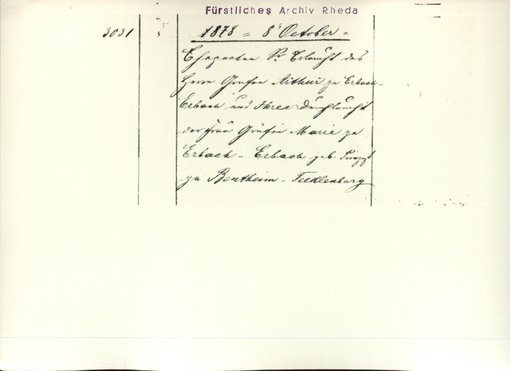 Fürstliches Archiv Rheda
3031 1878 = 8t October =
Ehepacten Sr. Erlaucht des
Herrn Grafen Arthur zu Erbach-
Erbach und Ihrer Durchlaucht
der Frau Gräfin Marie zu
Erbach-Erbach geb. Prinzeß
zu Bentheim-Tecklenburg